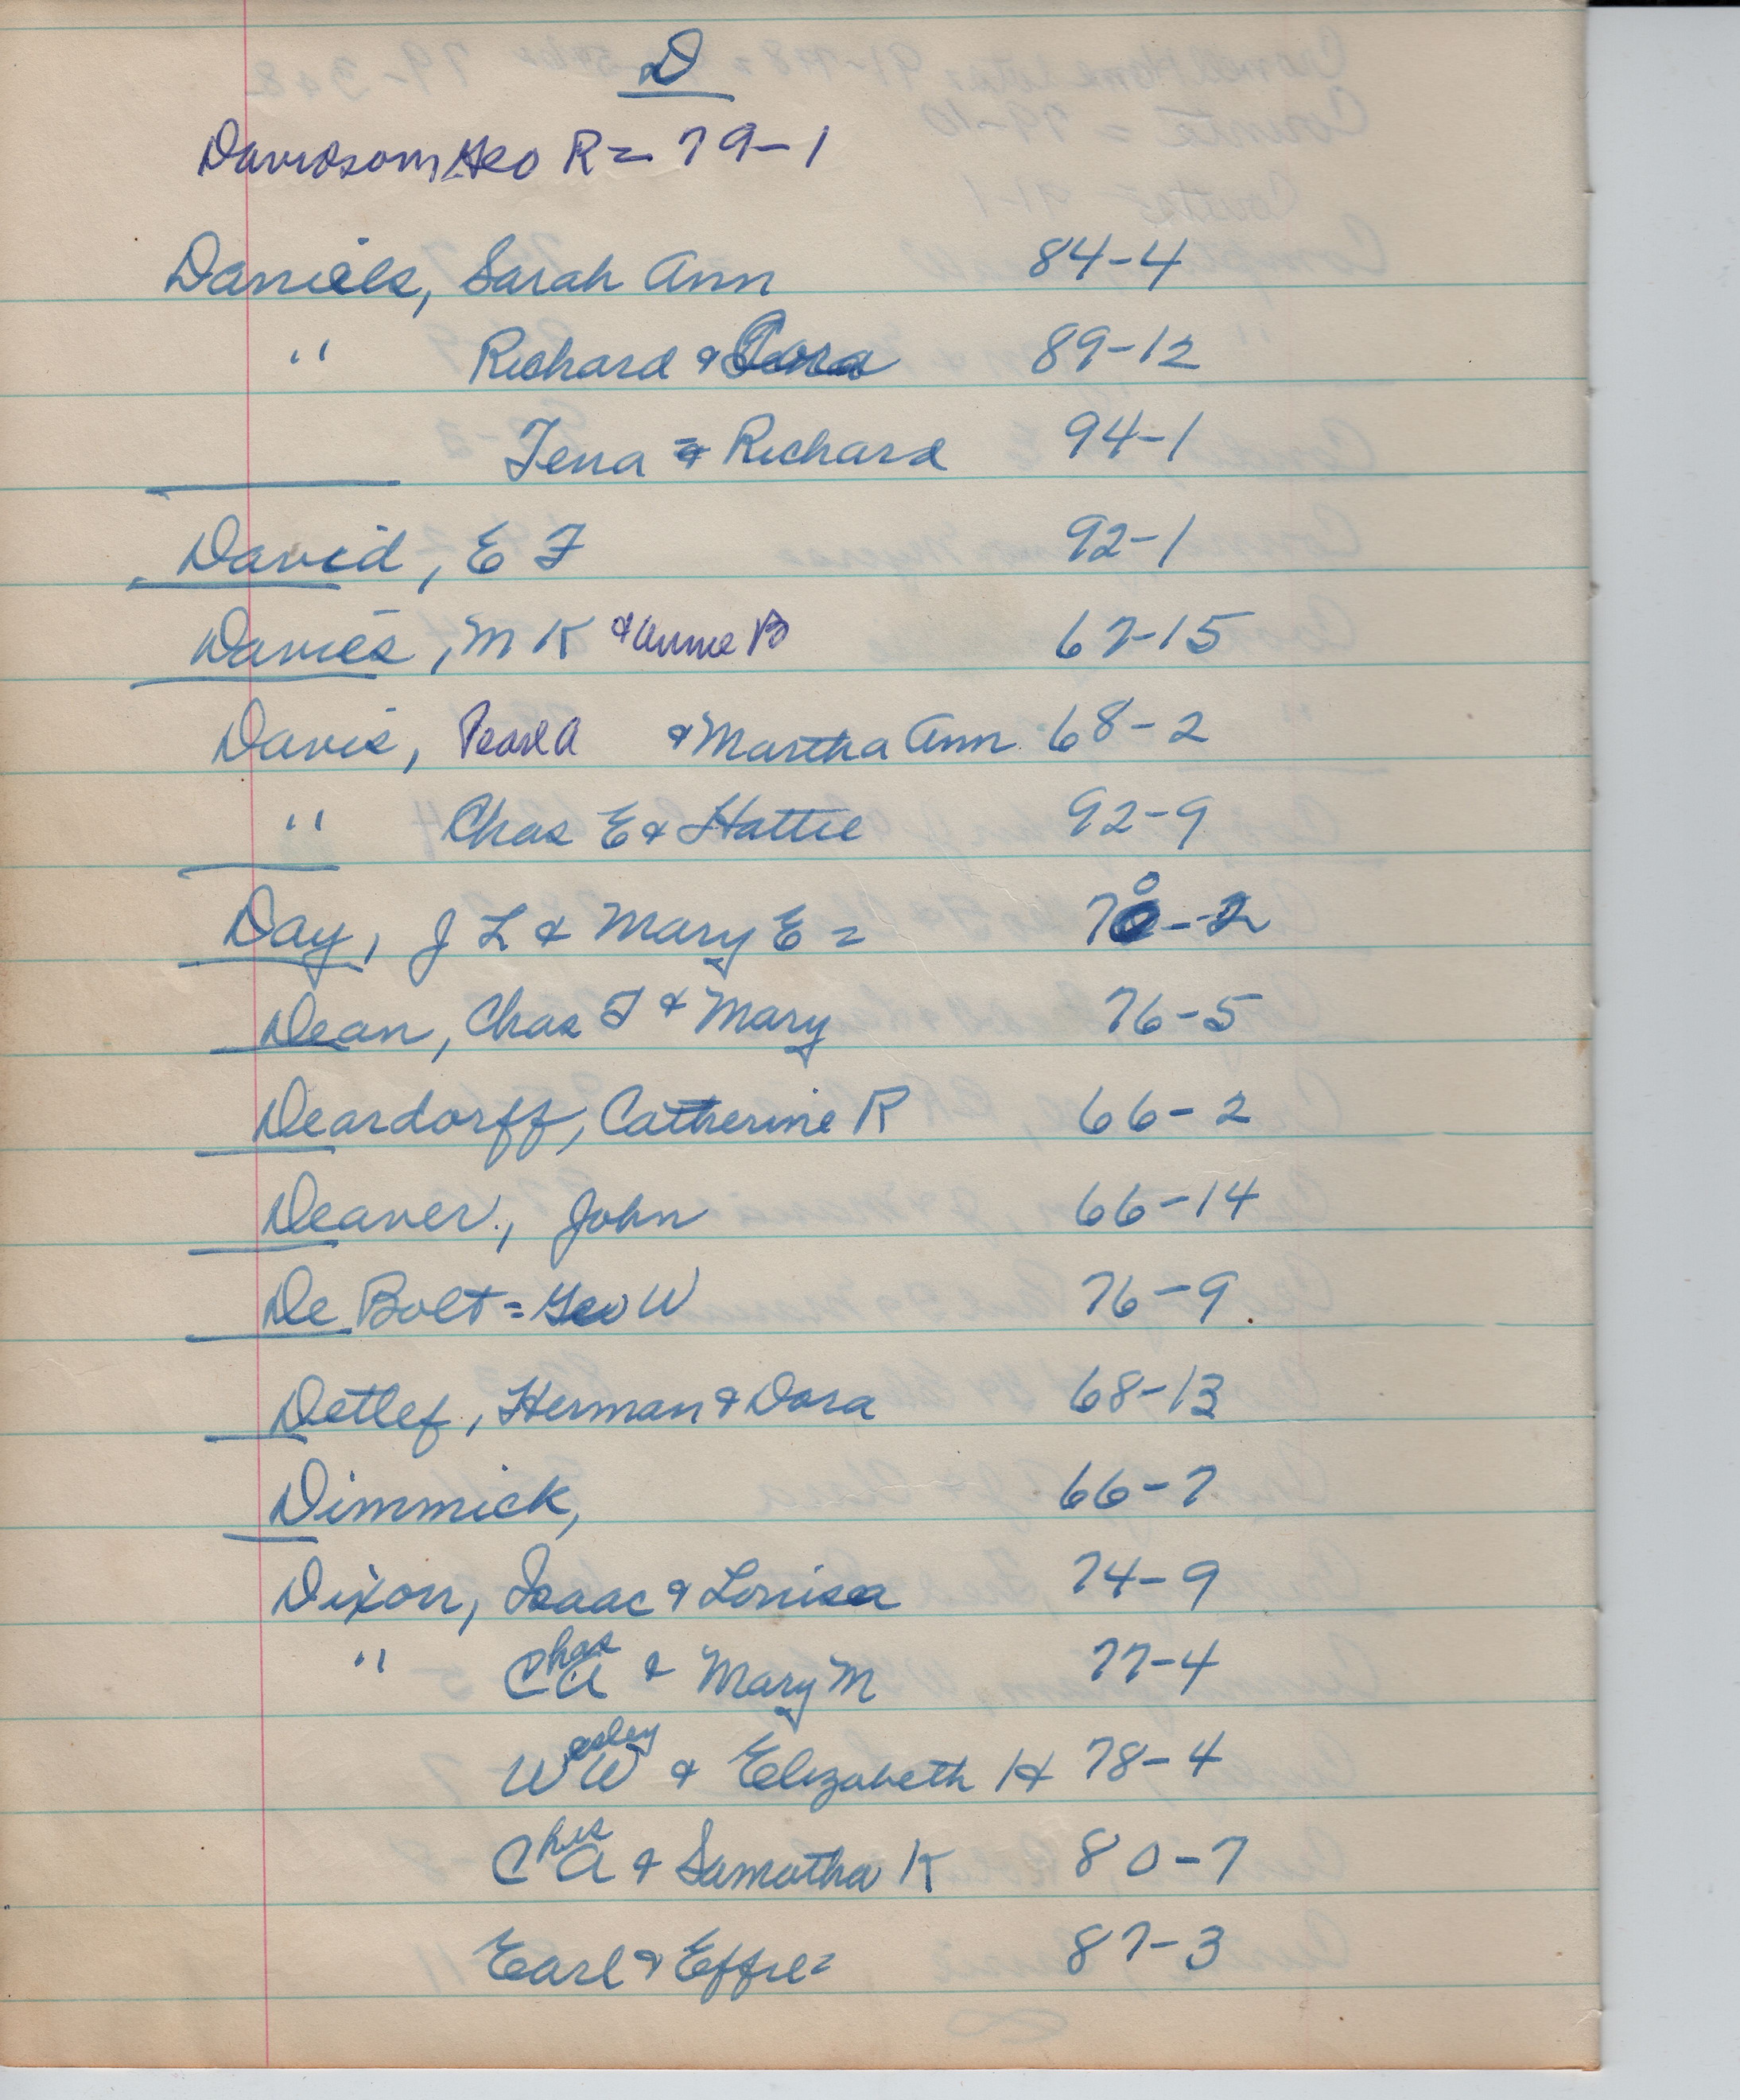 D
Davidson, Geo R = 79-1
Daniels, Sarah Ann 84-4
" Richard & 89-12
Tena & Richard 94-1
David, E F 92-1
Davies, M K & Annie B 67-15
Davis, Pearl A & Martha Ann 68-2
" Chas E & Hattie 92-9
Day, J L & Mary E = 70-2
Dean, Chas T & Mary 76-5
Deardorff, Catherine R 66-2
Deaver, John 66-14
De Bolt = Geo W 76-9
Detlef, Herman & Dora 68-13
Dimmick, 66-7
Dixon, Isaac & Louisa 74-9
" Chas A & Mary M 77-4
Wesley W & Elizabeth H 78-4
Chas A & Samatha K 80-7
Earl & Effie = 87-3